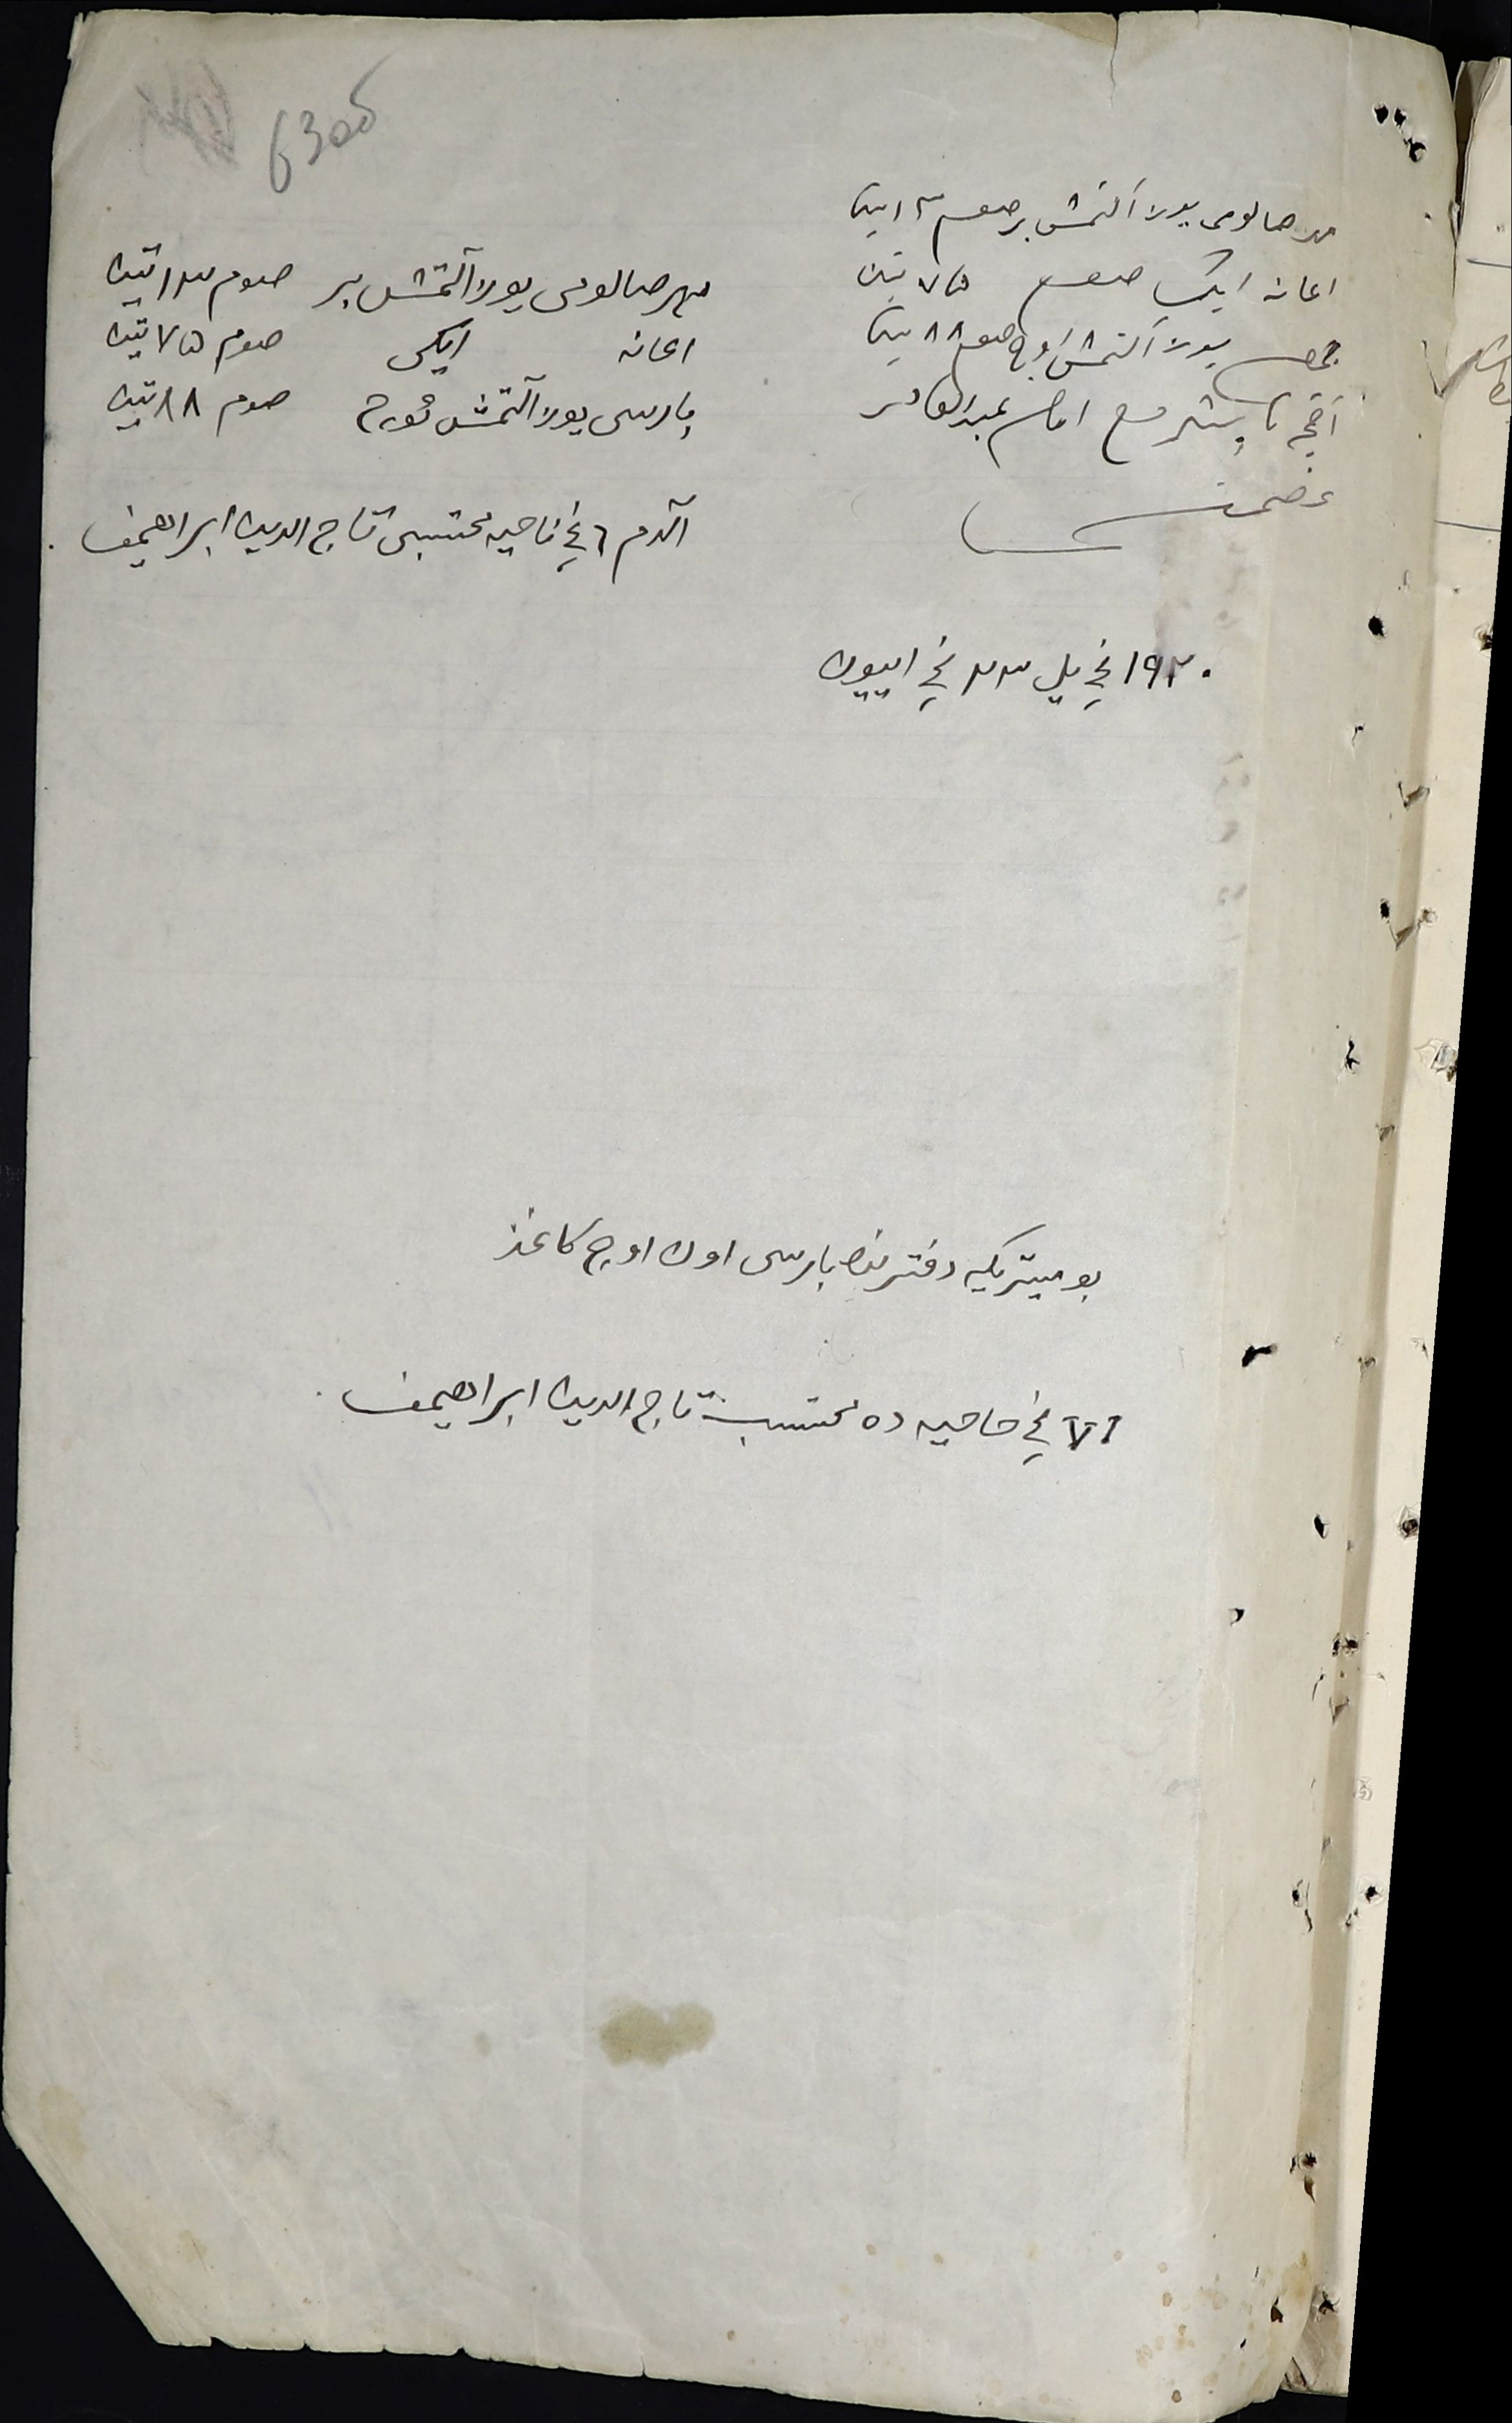 63об
مهر صالومی یوز آلتمش بر صوم ۱۳ تین
اعانه ایکی صوم ۷۵ تین
جمعسی یوز آلتمش اوچ صوم ۸۸ تین
آقچه تاپشردم امام عبدالقادر
مهر صالومی یوز آلتمش بر صوم ۱۳ تین
اعانه ایکی صوم ۷۵ تین
بارسی یوز آلتمش ئورچ صوم ۸۸ تین
آلدم ٦ نچی ناحیه محتسبی تاج الدین ابراهیمف
۱۹۲۰ نچی یل ۲۳ نچی اییون
بو میتریکه دفترنده بارسی اون اوچ کاغذ
۷۱ نچی ناحیه ده محتسب تاج الدین ابراهیمف